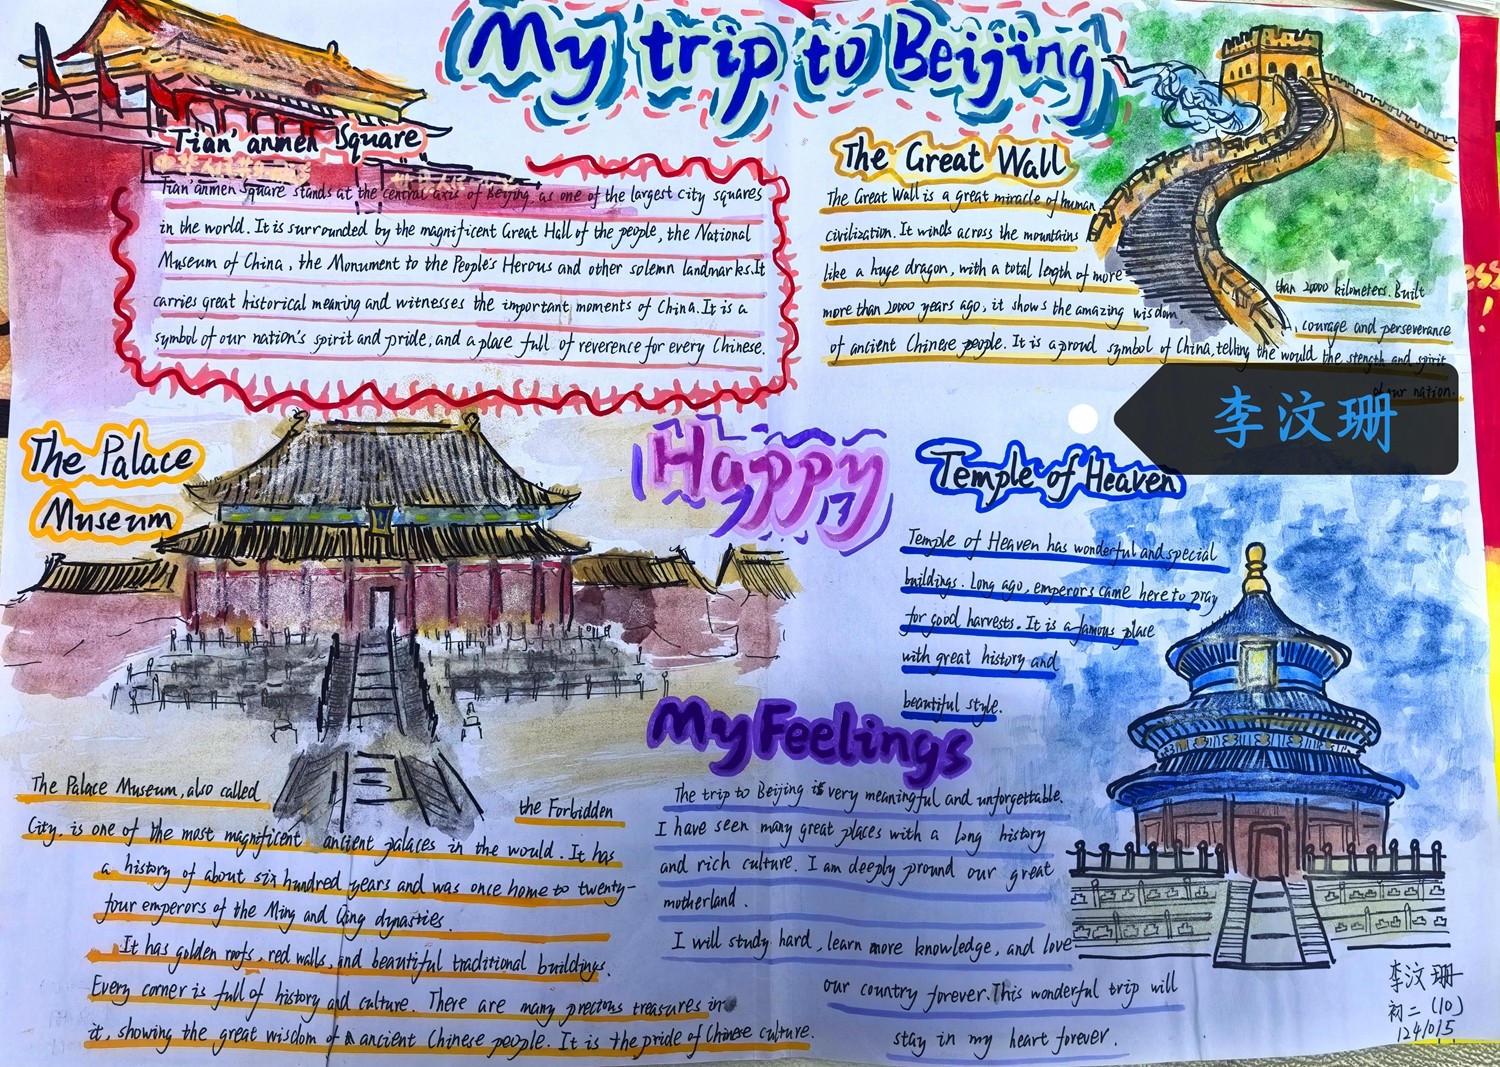 My trip to Beijing
Tian'anmen Square
Tian'anmen Square stands at the central axis of Beijing as one of the largest city squares
in the world. It is surrounded by the magnificent Great Hall of the people, the National
Museum of China, the Monument to the People's Herous and other solemn landmarks.It
carries great historical meaning and witnesses the important moments of China.It is a
symbol of our nation's spirit and pride, and a place full of reverence for every Chinese.
The Great Wall
The Great Wall is a great miracle of human
civilization. It winds across the mountains
like a huge dragon, with a total length of more
than 20000 kilometers. Built
more than 2000 years ago, it shows the amazing wisdom
, courage and perseverance
of ancient Chinese people. It is a proud symbol of China, telling the would the stength and spirit
of our nation.
李汶珊
The Palace
Museum
Happy
Temple of Heaven
Temple of Heaven has wonderful and special
buildings. Long ago, emperors came here to pray
for good harvests. It is a famous place
with great history and
beautiful style.
The Palace Museum, also called
the Forbidden
City, is one of the most magnificent ancient palaces in the world. It has
a history of about six hundred years and was once home to twenty-
four emperors of the Ming and Qing dynasties.
It has golden roofs, red walls, and beautiful traditional buildings.
Every corner is full of history and culture. There are many precious treasures in
it, showing the great wisdom of ancient Chinese people. It is the pride of Chinese culture.
My Feelings
The trip to Beijing is very meaningful and unforgettable.
I have seen many great places with a long history
and rich culture. I am deeply pround our great
motherland.
I will study hard, learn more knowledge, and love
our country forever.This wonderful trip will
stay in my heart forever.
李汶珊
初二(10)
1241015